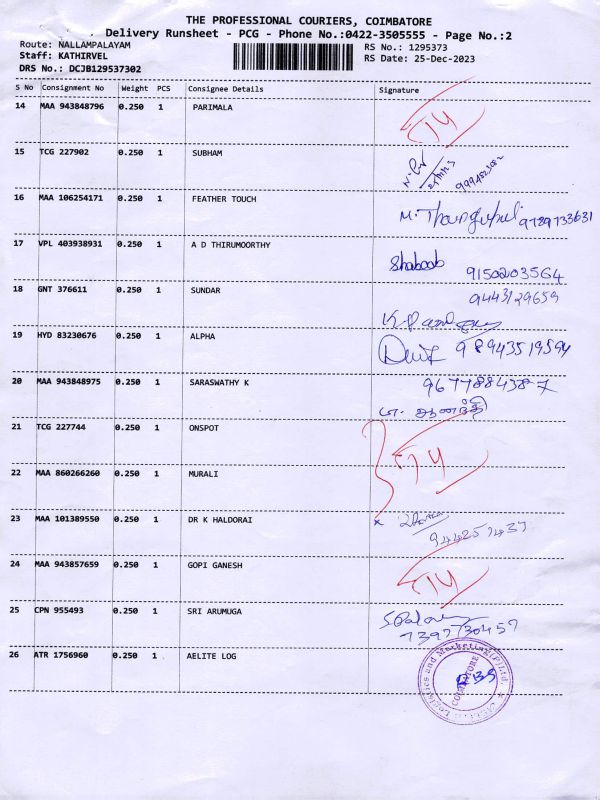 THE PROFESSIONAL COURIERS, COIMBATORE
Delivery Runsheet - PCG - Phone No.:0422-3505555 - Page No.:2
Route: NALLAMPALAYAM
RS No.: 1295373
Staff: KATHIRVEL
RS Date: 25-Dec-2023
DRS No.: DCJB129537302
S No Consignment No Weight PCS Consignee Details Signature
14 MAA 943848796 0.250 1 PARIMALA
15 TCG 227902 0.250 1 SUBHAM
16 MAA 106254171 0.250 1 FEATHER TOUCH
9789733631
17 VPL 403938931 0.250 1 A D THIRUMOORTHY
Shaboob 9150203564
18 GNT 376611 0.250 1 SUNDAR
9443129659
19 HYD 83230676 0.250 1 ALPHA
98943519594
20 MAA 943848975 0.250 1 SARASWATHY K
9677884387
ஆனந்தி
21 TCG 227744 0.250 1 ONSPOT
22 MAA 860266260 0.250 1 MURALI
23 MAA 101389550 0.250 1 DR K HALDORAI
24 MAA 943857659 0.250 1 GOPI GANESH
25 CPN 955493 0.250 1 SRI ARUMUGA
7397730457
26 ATR 1756960 0.250 1 AELITE LOG
Logistics and Marketing(P)Ltd.
COIMBATORE